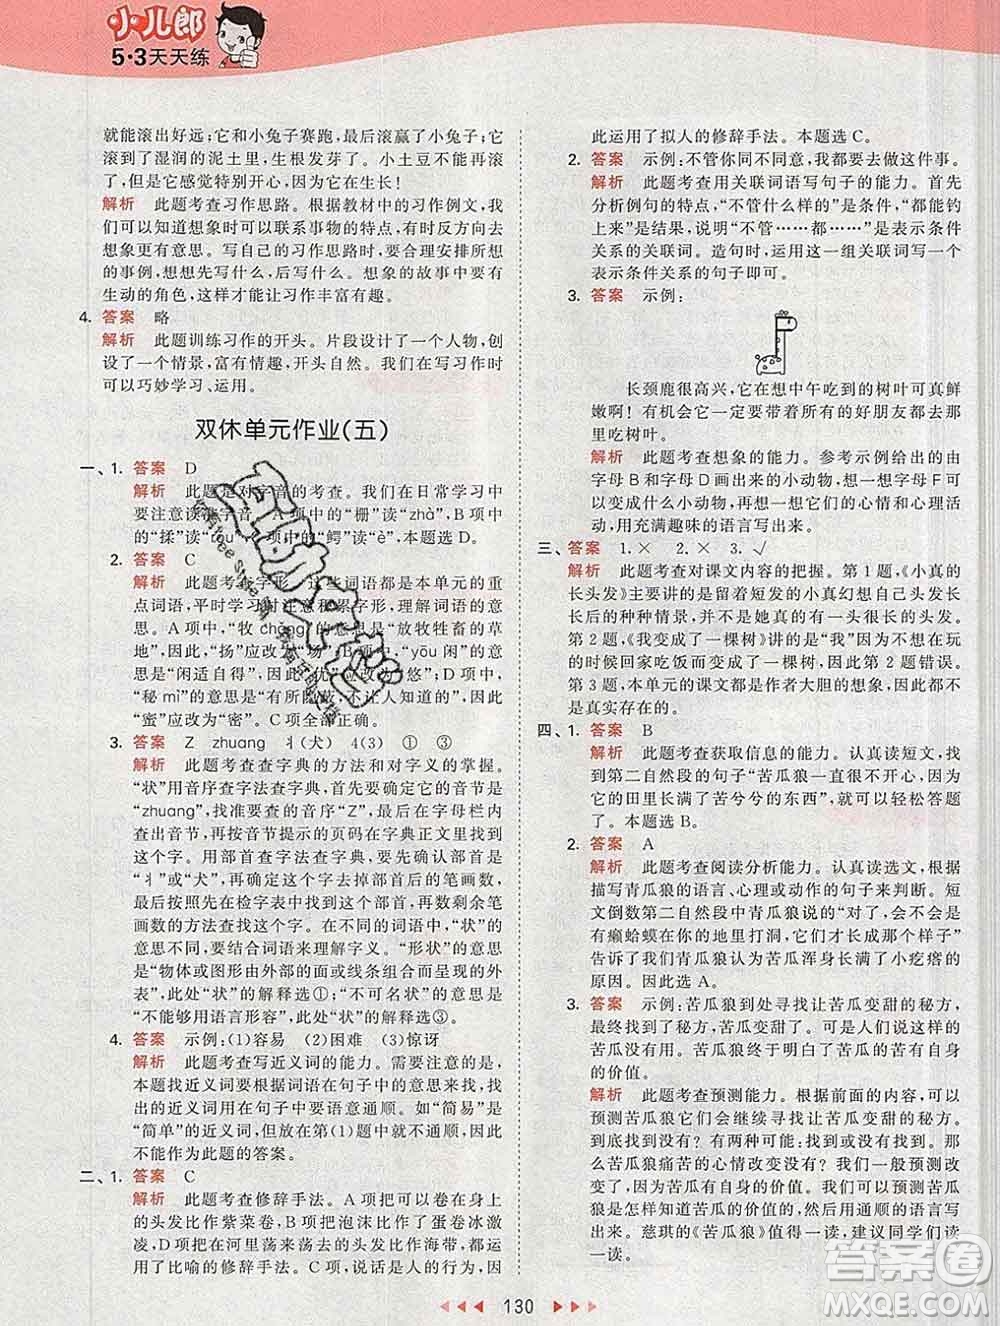 小儿郎
5·3天天练
就能滚出好远:它和小兔子赛跑,滚赢了小兔子;它
滚到了湿润的泥土里,生根发芽了。小土豆全身被埋
了,但是它感觉特别开心,因为它在生长!
解析 此题考查习作思路。根据教材中的习作例文,我
们可以知道想象时可以联系事物的特点,有时反方向去
想象更有意思。写自己的习作思路时要合理安排所想
的事例,想好先写什么,后写什么。想象的故事中要有
生动的角色,这样才能让习作丰富有趣。
4. 答案 略
解析 此题训练习作的开头。片段设计了一个人物,创
设了一个情景,富有情趣,开头自然。我们在写习作时
可以巧妙学习、运用。
双休单元作业(五)
一、1. 答案 D
解析 此题是对字音的考查。我们在日常学习中
要注意读准字音。A项中的“栅”读“zhà”,B项中
的“揉”读“róu”,C项中的“鳄”读“è”,本题选D。
2. 答案 C
解析 此题考查字形。这些词语都是本单元的重
点词语,平时学习时注意积累字形,理解词语的意
思。A项中,“牧chǎng”的意思是“放牧牲畜的草
地”,因此,“扬”应改为“场”。B项中,“yōu闲”的意思
是“闲适自得”,因此,“优”应改为“悠”;D项中,
“秘mì”的意思是“有所隐蔽,不让人知道的”,因此
“蜜”应改为“密”。C项全部正确。
3. 答案 Z zhuang 丬(犬) 4(3) ① ③
解析 此题考查查字典的方法和对字义的掌握。
“状”用音序查字法查字典,首先看它的音节是
“zhuang”,找准要查的音序“Z”,然后在字母栏内
查出音节,再按音节提示的页码在字典正文里找到
这个字。用部首查字法查字典,根据字形确认部首是
“丬”或“犬”,在部首目录里找到这个部首的笔画数,
最后按照先后顺序在检字表中找到这个部首,再数剩余笔
画数查找这个字。在不同的词语中,“状”
的意思不同,要结合词语来理解字义。“形状”的意思
是“物体或图形由外部的面或线条组合而呈现的外
表”,因此,此处“状”的解释选①;“不可名状”的意思是
“不能够用语言形容”,此处“状”的解释选③。
4. 答案 示例:(1)容易 (2)困难 (3)惊讶
解析 此题考查写近义词的能力。需要注意的是,
本题找近义词要根据词语在句子中的意思来找,
找出的近义词在句子中要语意通顺。如“简易”是
“简单”的近义词,但放在第(1)题中就不通顺,因此
不能作为此题的答案。
二、1. 答案 C
解析 此题考查修辞手法。A项把可以卷在身上
的头发比作紫菜卷,B项把泡沫比作蛋卷冰激
凌,D项把在河里荡来荡去的头发比作海带,都使
用了比喻的修辞手法。C项,说话是人的行为,因
此运用了拟人的修辞手法。本题选C。
2. 答案 示例:不管你同不同意,我都要去做这件事。
解析 此题考查用关联词语写句子的能力。首先
分析例句的特点,“不管什么样的”是条件,“都能钓
上来”是结果,说明“不管……都……”是表示条件
关系的关联词。造句时,运用这一组关联词写一个
表示条件关系的句子即可。
3. 答案 示例:
长颈鹿很高兴,它在想中午吃到的树叶可真鲜
嫩啊!有机会它一定要带着所有的好朋友都去那
里吃树叶。
解析 此题考查想象的能力。参考示例给出的由
字母B和字母D画出来的小动物,想一想字母F可
以变成什么小动物,再想一想它们的心情和心理活
动,用充满趣味的语言写出来。
三、答案 1.× 2.× 3.√
解析 此题考查对课文内容的把握。第1题,《小真的
长头发》主要讲的是留着短发的小真幻想自己头发长
长后的种种情景,并不是她真的有一头很长的头发。
第2题,《我变成了一棵树》讲的是“我”因为不想在玩
的时候回家吃饭而变成了一棵树,因此第2题错误。
第3题,本单元的课文都是作者大胆的想象,因此都不
是真实存在的。
四、1. 答案 B
解析 此题考查获取信息的能力。认真读短文,找
到第二自然段的句子“苦瓜狼的坏脾气,就是因为
它的田里长满了苦兮兮的东西”,就可以轻松答题
了。本题选B。
2. 答案 A
解析 此题考查阅读分析能力。认真读选文,根据
描写青瓜狼的语言、心理或动作的句子来判断。短
文倒数第二自然段中青瓜狼的说的“对了,好像还
有癞蛤蟆在你的地里打洞,它们也会帮你松土呢”
告诉了我们青瓜狼发现苦瓜狼浑身长满了小疙瘩的
原因。因此选A。
3. 答案 示例:苦瓜狼到处寻找让苦瓜变甜的秘方,
最终找到了秘方,苦瓜变甜了。可是没有了苦味的
苦瓜没有人要了。苦瓜狼终于明白了苦瓜的苦有苦
的价值。
解析 此题考查预测能力。根据前面的内容,可以
预测到苦瓜狼它们会继续寻找让苦瓜变甜的秘方。
到底找没找到呢?有两种可能:找到了,苦瓜变甜
了,苦瓜狼痛苦的心情改变了;没有找到,但苦瓜
狼终于明白了自身的价值。我们也可以预测改变
苦瓜狼的想法,让它知道其实苦味也是一种独特的
价值。知道苦瓜的价值的价值,然后用通顺的语言写
出来。慈琪的《苦瓜狼》值得一读,建议同学们读
一读。
130
答案圈
MXQE.COM